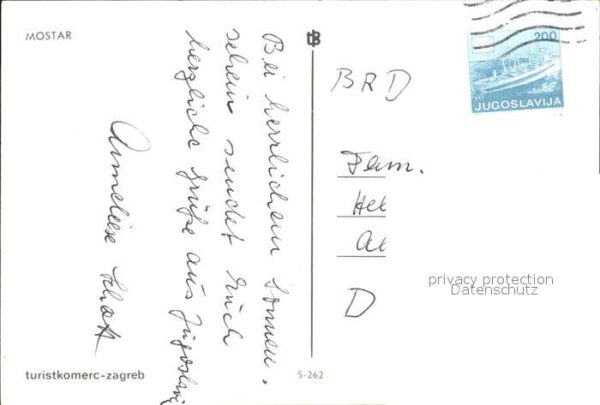 MOSTAR
Bei herrlichem Sonnen-
schein sendet Euch
herzliche Grüße aus Jugoslawi
Anneliese
BRD
Fam.
D
200
JUGOSLAVIJA
privacy protection
Datenschutz
turistkomerc-zagreb
S-262